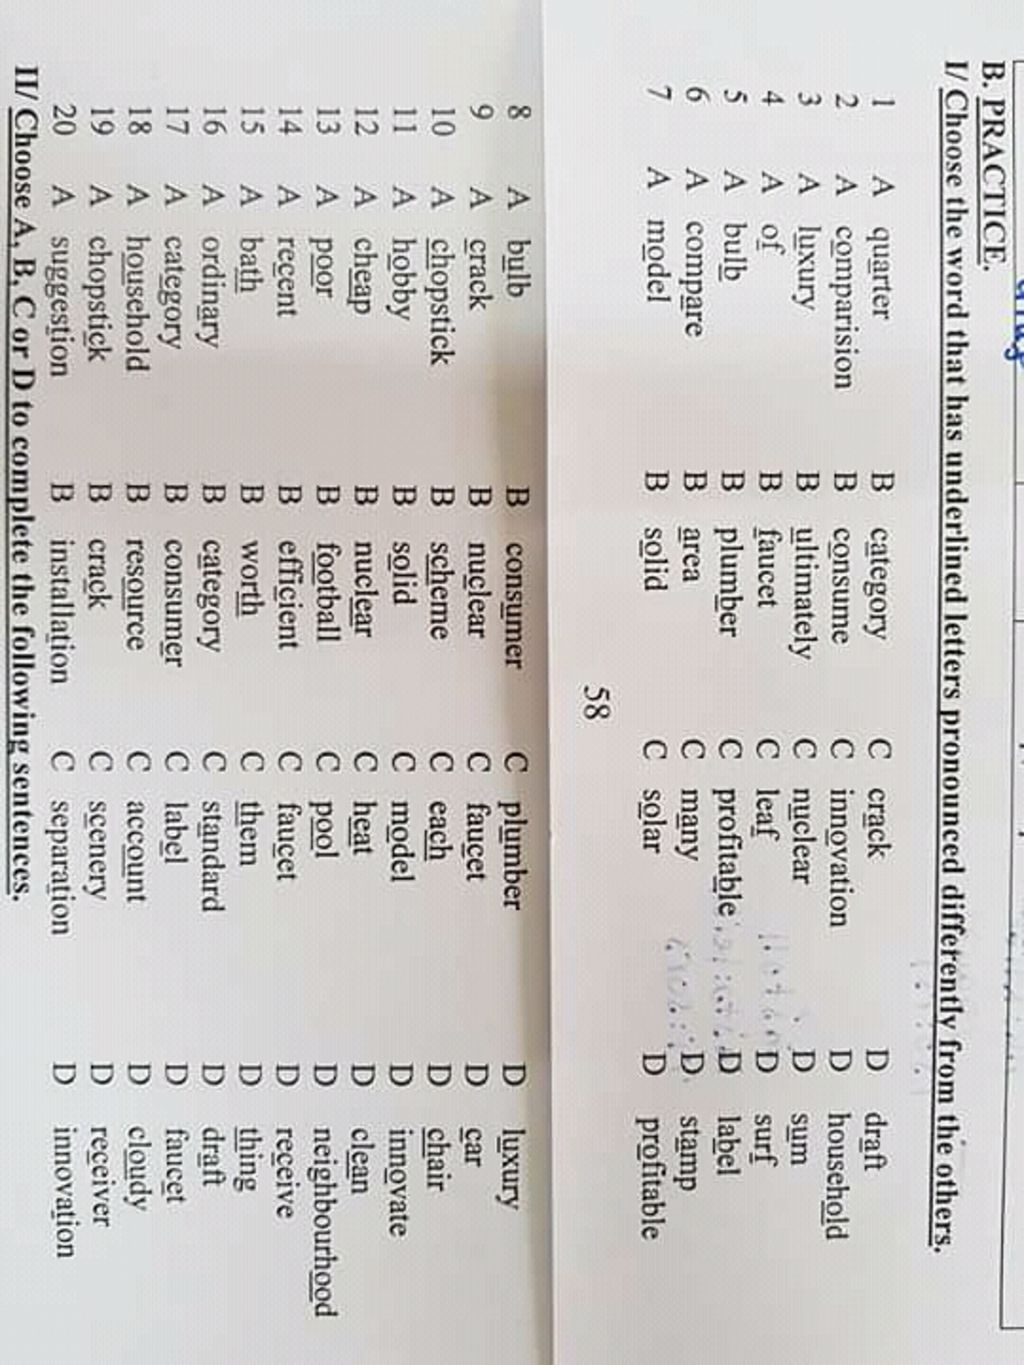 B. PRACTICE.
I/ Choose the word that has underlined letters pronounced differently from the others.
1 A quarter B category C crack D draft
2 A comparision B consume C innovation D household
3 A luxury B ultimately C nuclear D sum
4 A of B faucet C leaf D surf
5 A bulb B plumber C profitable D label
6 A compare B area C many D. stamp
7 A model B solid C solar D profitable
58
8 A bulb B consumer C plumber D luxury
9 A crack B nuclear C faucet D car
10 A chopstick B scheme C each D chair
11 A hobby B solid C model D innovate
12 A cheap B nuclear C heat D clean
13 A poor B football C pool D neighbourhood
14 A recent B efficient C faucet D receive
15 A bath B worth C them D thing
16 A ordinary B category C standard D draft
17 A category B consumer C label D faucet
18 A household B resource C account D cloudy
19 A chopstick B crack C scenery D receiver
20 A suggestion B installation C separation D innovation
II/ Choose A, B, C or D to complete the following sentences.